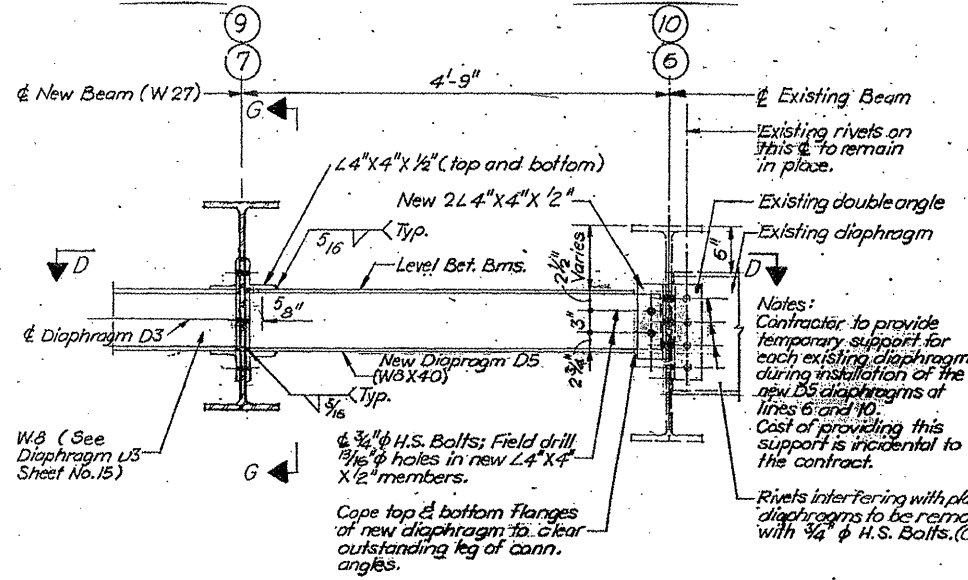 9
10
7
6
4'-9"
℄ New Beam (W27)
G
℄ Existing Beam
Existing rivets on
this ℄ to remain
in place.
L4"X4"X½" (top and bottom)
New 2L4"X4"X½"
Existing double angle
Existing diaphragm
5/16
Typ.
5"
D
D
Level Bet. Bms.
2½"
Varies
Notes:
Contractor to provide
temporary support for
each existing diaphragm
during installation of the
new D5 diaphragms at
lines 6 and 10.
Cost of providing this
support is incidental to
the contract.
5/8"
3"
℄ Diaphragm D3
2¾"
New Diaphragm D5
(W8X40)
5/16
Typ.
W8 (See
Diaphragm D3
Sheet No.15)
℄ ¾"φ H.S. Bolts; Field drill
13/16"φ holes in new L4"X4"
X½" members.
G
Cope top & bottom flanges
of new diaphragm to clear
outstanding leg of conn.
angles.
Rivets interfering with
diaphragms to be
with ¾" φ H.S. Bolts.